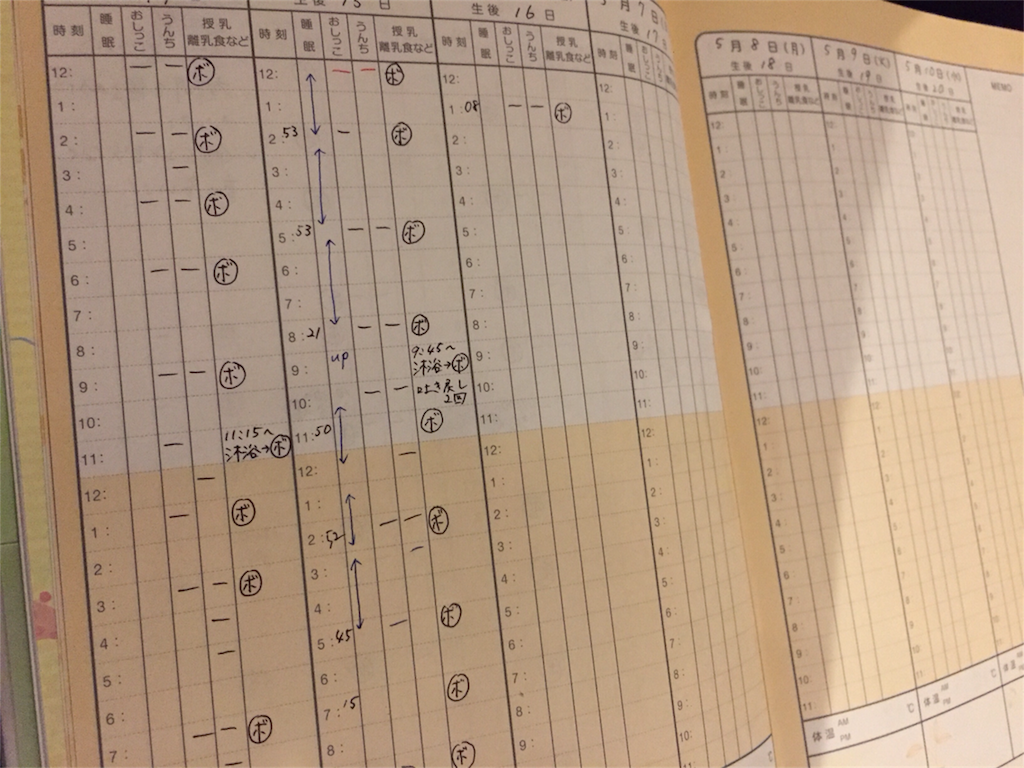 生後 15 日
生後 16 日
5 月 7 日
生後 17
時刻 睡眠 おしっこ うんち 授乳 離乳食など
時刻 睡眠 おしっこ うんち 授乳 離乳食など
時刻 睡眠 おしっこ うんち 授乳 離乳食など
時刻 睡眠 おしっこ うんち
12: ボ
1:
2: ボ
3:
4: ボ
5:
6: ボ
7:
8:
9: ボ
10:
11: 11:15〜
沐浴→ボ
12:
1: ボ
2:
3: ボ
4:
5:
6: ボ
7:
12: ボ
1:
2:53 ボ
3:
4:
5:53 ボ
6:
7:
8:21 ボ
9: up 9:45〜
沐浴→ボ
10: 吐き戻し
2回
11:50 ボ
12:
1:
2:52 ボ
3:
4:
5:45 ボ
6:
7:15 ボ
8: ボ
12:
1:08 ボ
2:
3:
4:
5:
6:
7:
8:
9:
10:
11:
12:
1:
2:
3:
4:
5:
6:
7:
8:
9:
12:
1:
2:
3:
4:
5:
6:
7:
8:
9:
10:
11:
12:
1:
2:
3:
4:
5:
6:
7:
8:
9:
10:
5 月 8 日 (月)
生後 18 日
5 月 9 日 (火)
生後 19 日
5 月 10 日
生後 20 日
MEMO
時刻 睡眠 おしっこ うんち 授乳 離乳食など
12:
1:
2:
3:
4:
5:
6:
7:
8:
9:
10:
11:
12:
1:
2:
3:
4:
5:
6:
7:
8:
9:
10:
11:
体温 AM PM ℃
体温 AM PM ℃